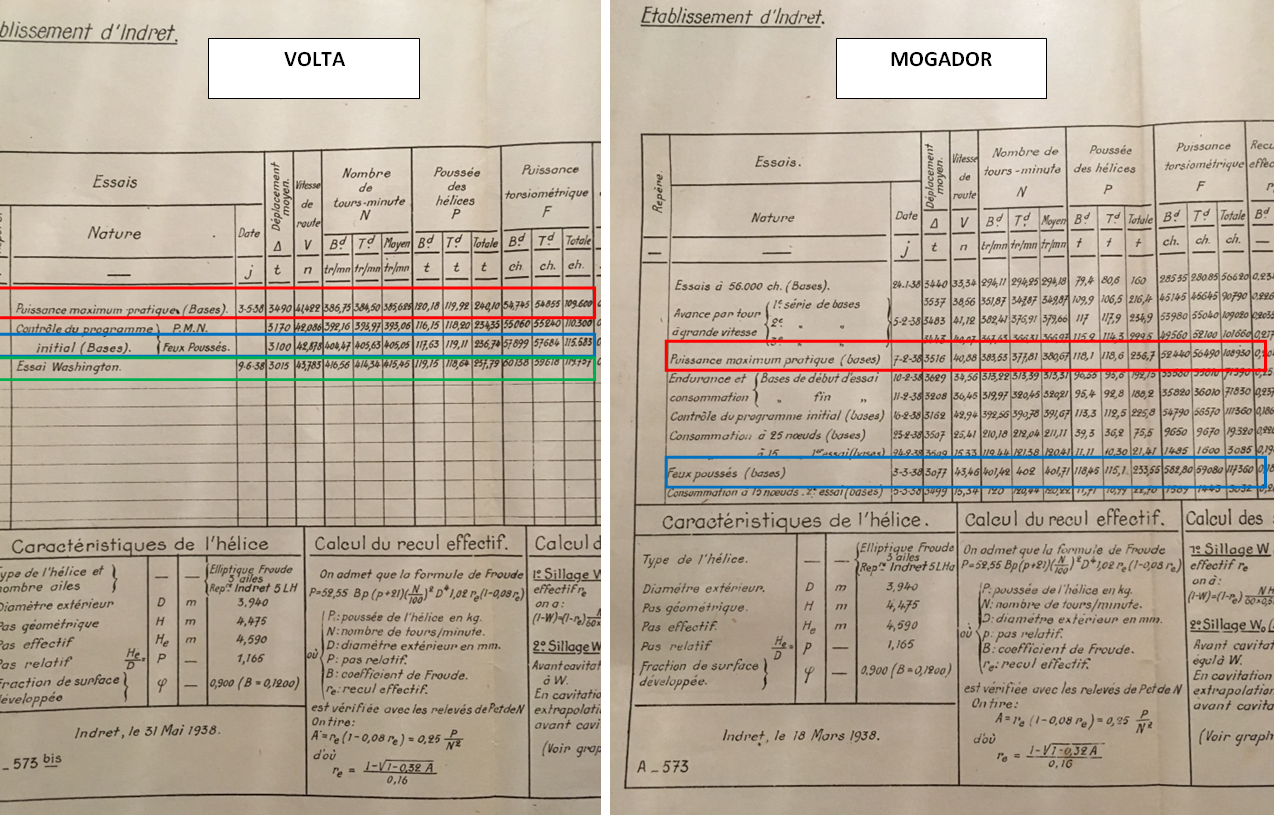 blissement d'Indret.
VOLTA
Essais
Déplacement moyen.
Vitesse de route
Nombre de tours-minute N
Poussée des hélices P
Puissance torsiométrique F
Nature
Date
Δ V Bd Td Moyen Bd Td Totale Bd Td Totale
— j t n tr/mn tr/mn tr/mn t t t ch. ch. ch.
Puissance maximum pratique (Bases) 3-5-38 3490 41,422 386,75 384,50 385,625 120,18 119,92 240,10 54,745 54855 109.600
Contrôle du programme } P.M.N. 3170 42,086 392,16 393,97 393,06 116,15 118,20 234,35 55060 55240 110.300
initial (Bases). } Feux Poussés. 3100 42,878 404,47 405,63 405,05 117,63 119,11 236,74 57899 57684 115.583
Essai Washington. 9-6-38 3015 43,783 416,56 414,34 415,45 119,15 118,64 237,79
Caractéristiques de l'hélice
Type de l'hélice et } — — { Elliptique Froude
nombre ailes 3 ailes
Repre Indret 5 LH
Diamètre extérieur D m 3,940
Pas géométrique H m 4,475
Pas effectif He m 4,590
Pas relatif He/D = P — 1,165
Fraction de surface } φ — 0,900 (B = 0,1200)
développée
Calcul du recul effectif.
On admet que la formule de Froude
P=52,55 Bp(p+21)(N/100)²D⁴1,02 re(1-0,08re)
où { P: poussée de l'hélice en kg.
N: nombre de tours/minute.
D: diamètre extérieur en mm.
p: pas relatif.
B: coefficient de Froude.
re: recul effectif.
est vérifiée avec les relevés de P et de N
On tire:
A = re (1-0,08 re) = 0,25 P/N²
d'où
re = 1-√1-0,32 A / 0,16
Calcul d
1º Sillage W
effectif re
on a:
(1-W)=(1-re)
2º Sillage W
Avant cavitat
à W.
En cavitation
extrapolation
avant cavi
(Voir grap
Indret, le 31 Mai 1938.
_ 573 bis
Etablissement d'Indret.
MOGADOR
Repère.
Essais.
Déplacement moyen
Vitesse de route
Nombre de tours-minute N
Poussée des hélices P
Puissance torsiométrique F
Recu
effec
Nature
Date
Δ V Bd Td Moyen Bd Td Totale Bd Td Totale
— — j t n tr/mn tr/mn tr/mn t t t ch. ch. ch. —
Essai à 56.000 ch. (Bases). 24-1-38 3440 33,34 294,11 294,25 294,18 79,4 80,6 160 28535 28085 56620
Avance par tour { 1e série de bases 3537 38,56 351,87 347,87 349,87 109,9 106,5 216,4 45145 45645 90790
à grande vitesse 2e „ „ 5-2-38 3483 41,12 382,41 376,91 379,66 117 117,9 234,9 53980 55040 109020
3e „ „ 49560 52100 101660
Puissance maximum pratique (bases) 7-2-38 3516 40,88 383,53 377,81 380,67 118,1 118,6 236,7 52440 56490 108930
Endurance et { Bases de début d'essai 10-2-38 3629 34,56 313,22 313,39 313,31
consommation „ fin „ 11-2-38 3208 36,45 319,97 320,45 320,21 95,4 92,8 188,2 35820 36010 71830
Contrôle du programme initial (bases) 16-2-38 3162 42,94 392,56 390,78 391,67 113,3 112,5 225,8 54790 56570 111360
Consommation à 25 nœuds (bases) 23-2-38 3507 25,41 210,18 212,04 211,11 39,3 36,2 75,5 9650 9670 19320
à 15 1er essai (bases) 15,33 119,44 121,38 120,41 11,11 10,30 21,41 1485 1600 3085
Feux poussés (bases) 3-3-38 3077 43,45 401,42 402 401,71 118,45 115,1 233,55 582,80 59080 117360
Consommation à 15 nœuds. 2e essai (bases) 5-3-38 3499 15,34
Caractéristiques de l'hélice.
Type de l'hélice. — — { Elliptique Froude
3 ailes
Repre Indret 5 LHa
Diamètre extérieur D m 3,940
Pas géométrique. H m 4,475
Pas effectif. He m 4,590
Pas relatif He/D = P — 1,165
Fraction de surface } φ — 0,900 (B = 0,1200)
développée.
Calcul du recul effectif.
On admet que la formule de Froude
P=52,55 Bp(p+21)(N/100)²D⁴1,02 re(1-0,08 re)
où { P: poussée de l'hélice en kg.
N: nombre de tours/minute.
D: diamètre extérieur en mm.
p: pas relatif.
B: coefficient de Froude.
re: recul effectif.
est vérifiée avec les relevés de P et de N
On tire:
A = re (1-0,08 re) = 0,25 P/N²
d'où
re = 1-√1-0,32 A / 0,16
Calcul des
1º Sillage W
effectif re
on a:
(1-W)=(1-re)
2º Sillage Wo
Avant cavitat
égal à W.
En cavitation
extrapolation
avant cavita
(Voir graph
Indret, le 18 Mars 1938.
A _ 573